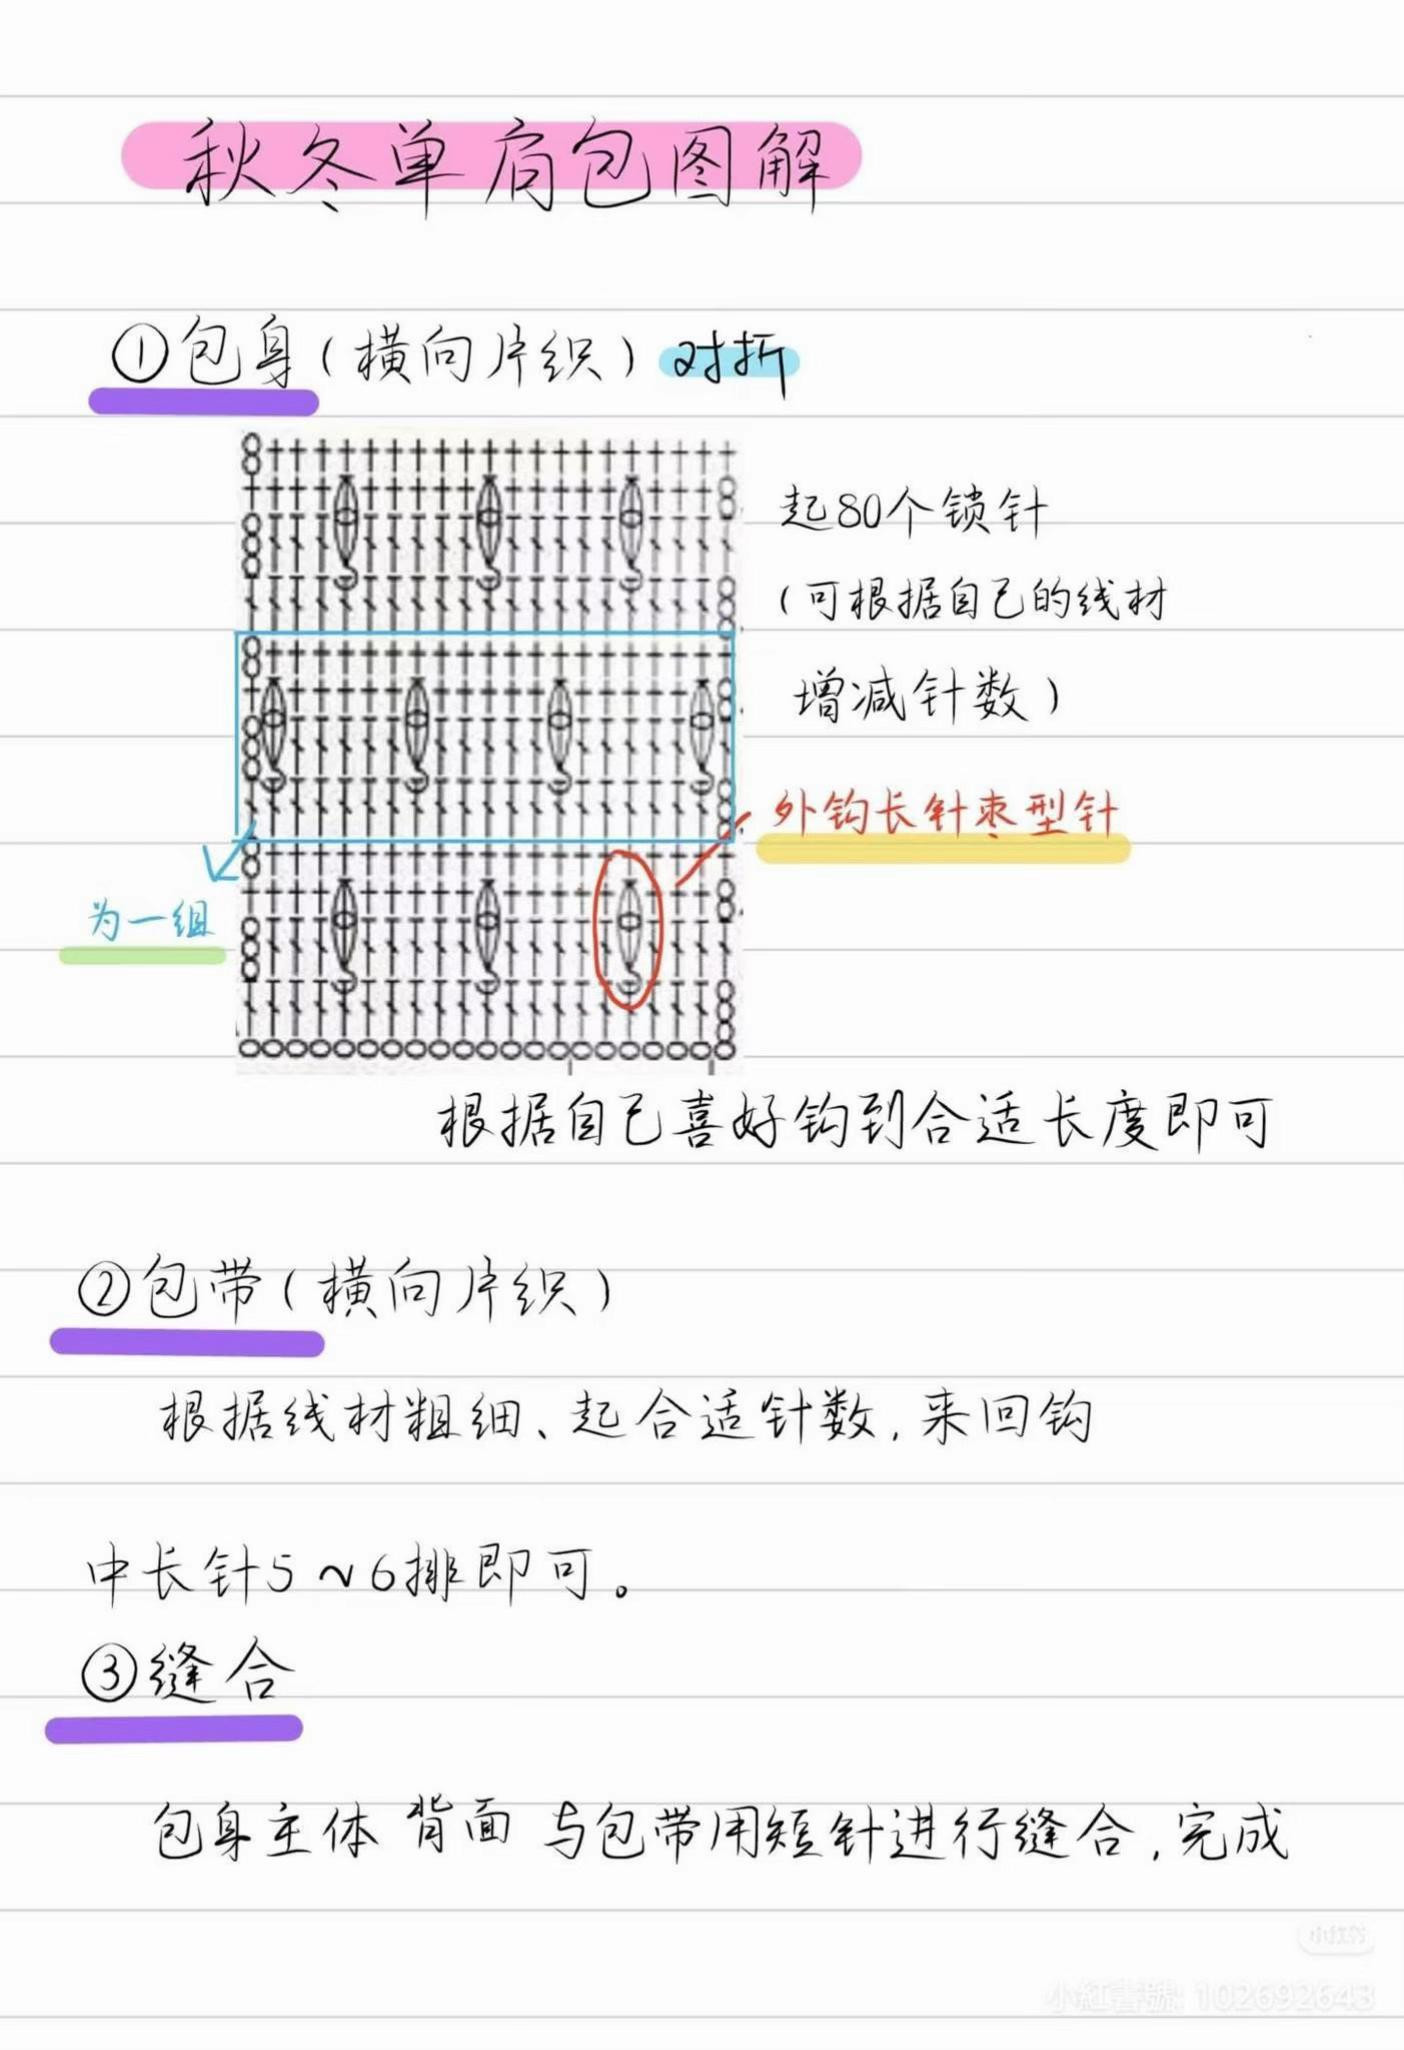 秋冬单肩包图解
①包身（横向片织）对折
起80个锁针
（可根据自己的线材
增减针数）
外钩长针枣型针
为一组
根据自己喜好钩到合适长度即可
②包带（横向片织）
根据线材粗细、起合适针数，来回钩
中长针5~6排即可。
③缝合
包身主体 背面 与包带用短针进行缝合，完成
小红书
小紅書號: 102692643